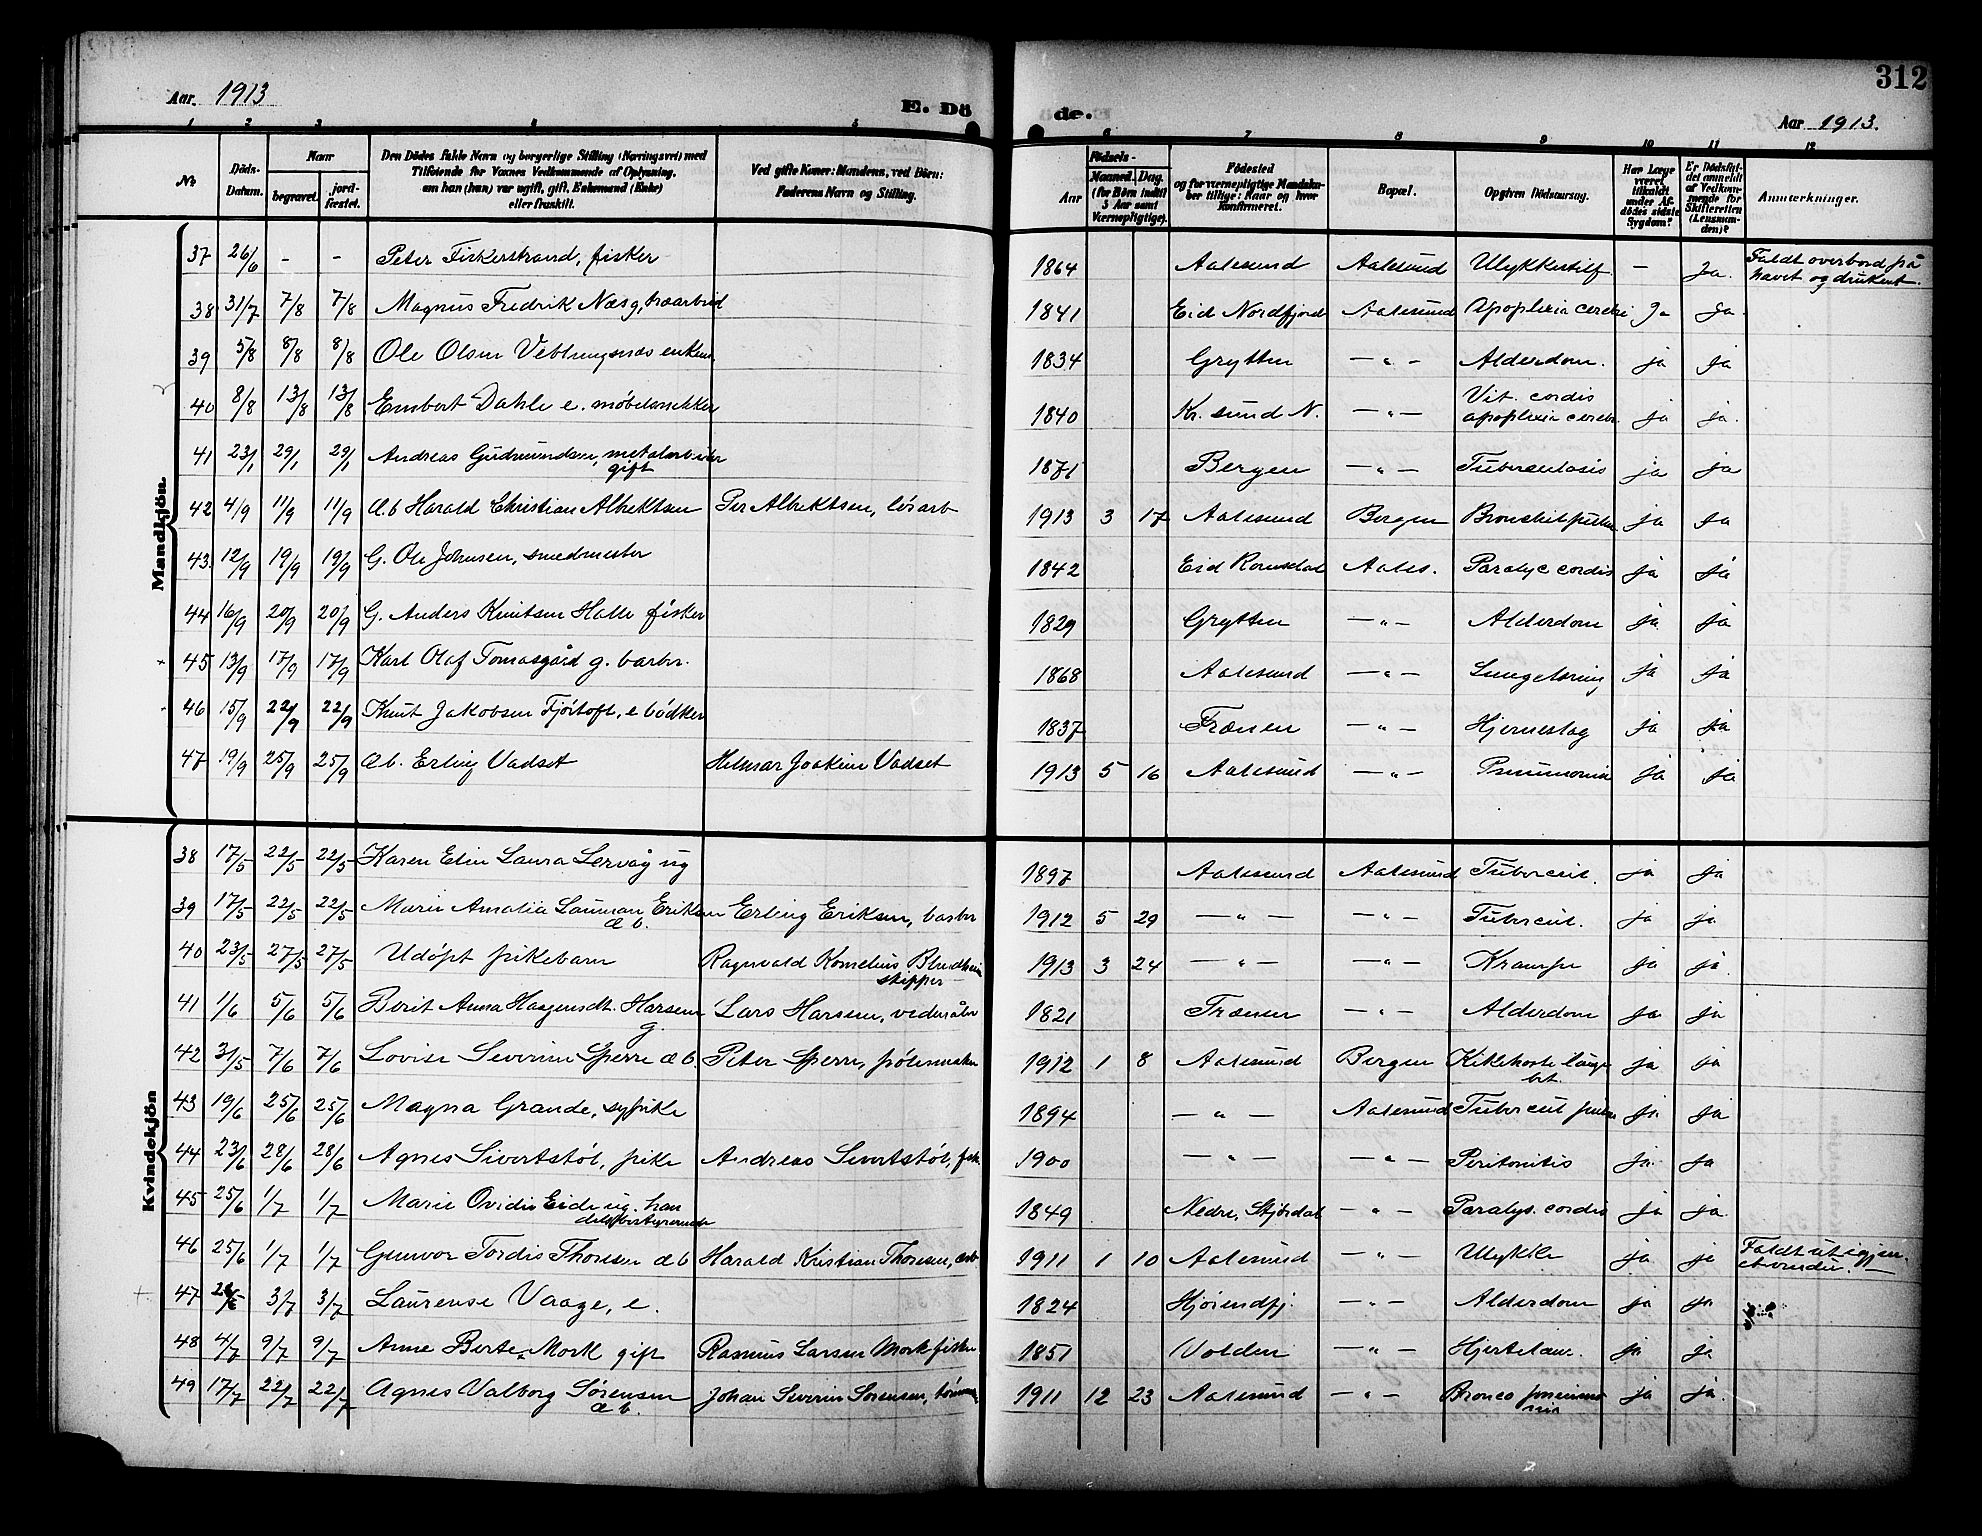 312
Aar 1913
E. Dö
de.
Aar 1913.
1 2 3 4 5 6 7 8 9 10 11 12
No
Döds-Datum.
Naar
begravet.
jordfæstet.
Den Dödes fulde Navn og borgerlige Stilling (Næringsvei) med Tilföiende for Voxnes Vedkommende af Oplysning, om han (hun) var ugift, gift, Enkemand (Enke) eller fraskilt.
Ved gifte Koner: Mandens, ved Börn: Faderens Navn og Stilling.
Födsels-
Aar
Maaned. Dag.
(for Börn indtil 5 Aar samt Værnepligtige).
Födested og for værnepligtige Mandskaber tillige: Naar og hvor Konfirmeret.
Bopæl.
Opgiven Dödsaarsag.
Har Læge været tilkaldt under Afdödes sidste Sygdom?
Er Dödsfaldet anmeldt af Vedkommende for Skifteretten (Lensmanden)?
Anmærkninger.
Mandkjön.
37 26/6 - - Peter Fiskerstrand, fisker 1864 Aalesund Aalesund Ulykkestilf — Ja. Faldt overbord på havet og druknet.
38 31/7 7/8 7/8 Magnus Fredrik Næs g, træarbeid 1841 Eid Nordfjord Aalesund Apoplexia cerebri Ja Ja.
39 5/8 8/8 8/8 Ole Olsen Veblungsnæs enkem. 1834 Grytten — " — Alderdom. ja ja
40 8/8 13/8 13/8 Embert Dahle e. møbelsnekker 1840 Kr. sund N. — " — Vit. cordis apoplexia cerebr. ja ja.
41 23/1 29/1 29/1 Andreas Gudmundsen, metalarbeider gift 1871 Bergen — " — Tuberculosis ja ja
42 4/9 11/9 11/9 Æ.b Harald Christian Albrektsen Per Albrektsen, løsarb 1913 3 17 Aalesund Bergen ja Ja
43. 12/9 19/9 19/9 G. Ole Johnsen, smedmester 1842 Eid Romsdal Aales. Paralyc cordis ja ja
44 16/9 20/9 20/9 G. Anders Knutsen Halle fisker 1829 Grytten — " — Alderdom ja ja
45 13/9 17/9 17/9 Karl Olaf Tomasgård g. barber. 1868 Aalesund — " — Lungetæring ja ja
46 15/9 22/9 22/9 Knut Jakobsen Fjörtoft, e bödker 1837 Frænen — " — Hjerneslag ja ja
47 19/9 25/9 25/9 Æb. Erling Vadset Helmar Joakim Vadset 1913 5 16 Aalesund — " — Pneumonia ja ja
Kvindekjön
38 17/5 22/5 22/5 Karen Elin Laura Lervåg ug 1897 Aalesund Aalesund Tubercul. ja ja
39 17/5 22/5 22/5 Marie Amalia Eriksen æ b. Erling Eriksen, barber 1912 5 29 — " — — " — Tubercul. ja ja
40 23/5 27/5 27/5 Udöpt pikebarn Ragnvald Kornelius Blindheim skipper 1913 3 24 — " — — " — Krampe ja ja.
41 1/6 5/6 5/6 Berit Anna Haagensdt. Harsem g. Lars Harsem, vedmåler 1821 Frænen — " — Alderdom ja ja
42 31/5 7/6 7/6 Lovise Severine Sperre æ b. Peter Sperre, pølsemaker 1912 1 8 Aalesund Bergen Kikhoste lunge bet. ja ja
43 19/6 25/6 25/6 Magna Grande, sypike 1894 — " — Aalesund Tubercul pulm. ja ja
44 23/6 28/6 28/6 Agnes Sivertstøl, pike Andreas Sivertstøl, fisk 1900 — " — — " — Peritonitis ja. ja
45 25/6 1/7 1/7 Marie Ovidie Eide ug. handelsbestyrerinde 1849 Nedre, Stjørdal — " — Paralys. cordis ja ja
46 25/6 1/7 1/7 Gunvor Tordis Thoresen æ b Harald Kristian Thoresen, arb 1911 1 10 Aalesund — " — Ulykke ja je Faldt ut igjennem et vindu.
47 3/7 3/7 Laurense Vaage, e. 1824 Hjørendfj. — " — Alderdom ja ja
48 4/7 9/7 9/7 Anne Berte Mork gift Rasmus Larsen Mork fisker 1851 Volden — " — ja ja
49 17/7 22/7 22/7 Agnes Valborg Sørensen æ b. Johan Severin Sørensen, 1911 12 23 Aalesund — " — Bronco pneumonia ja ja.